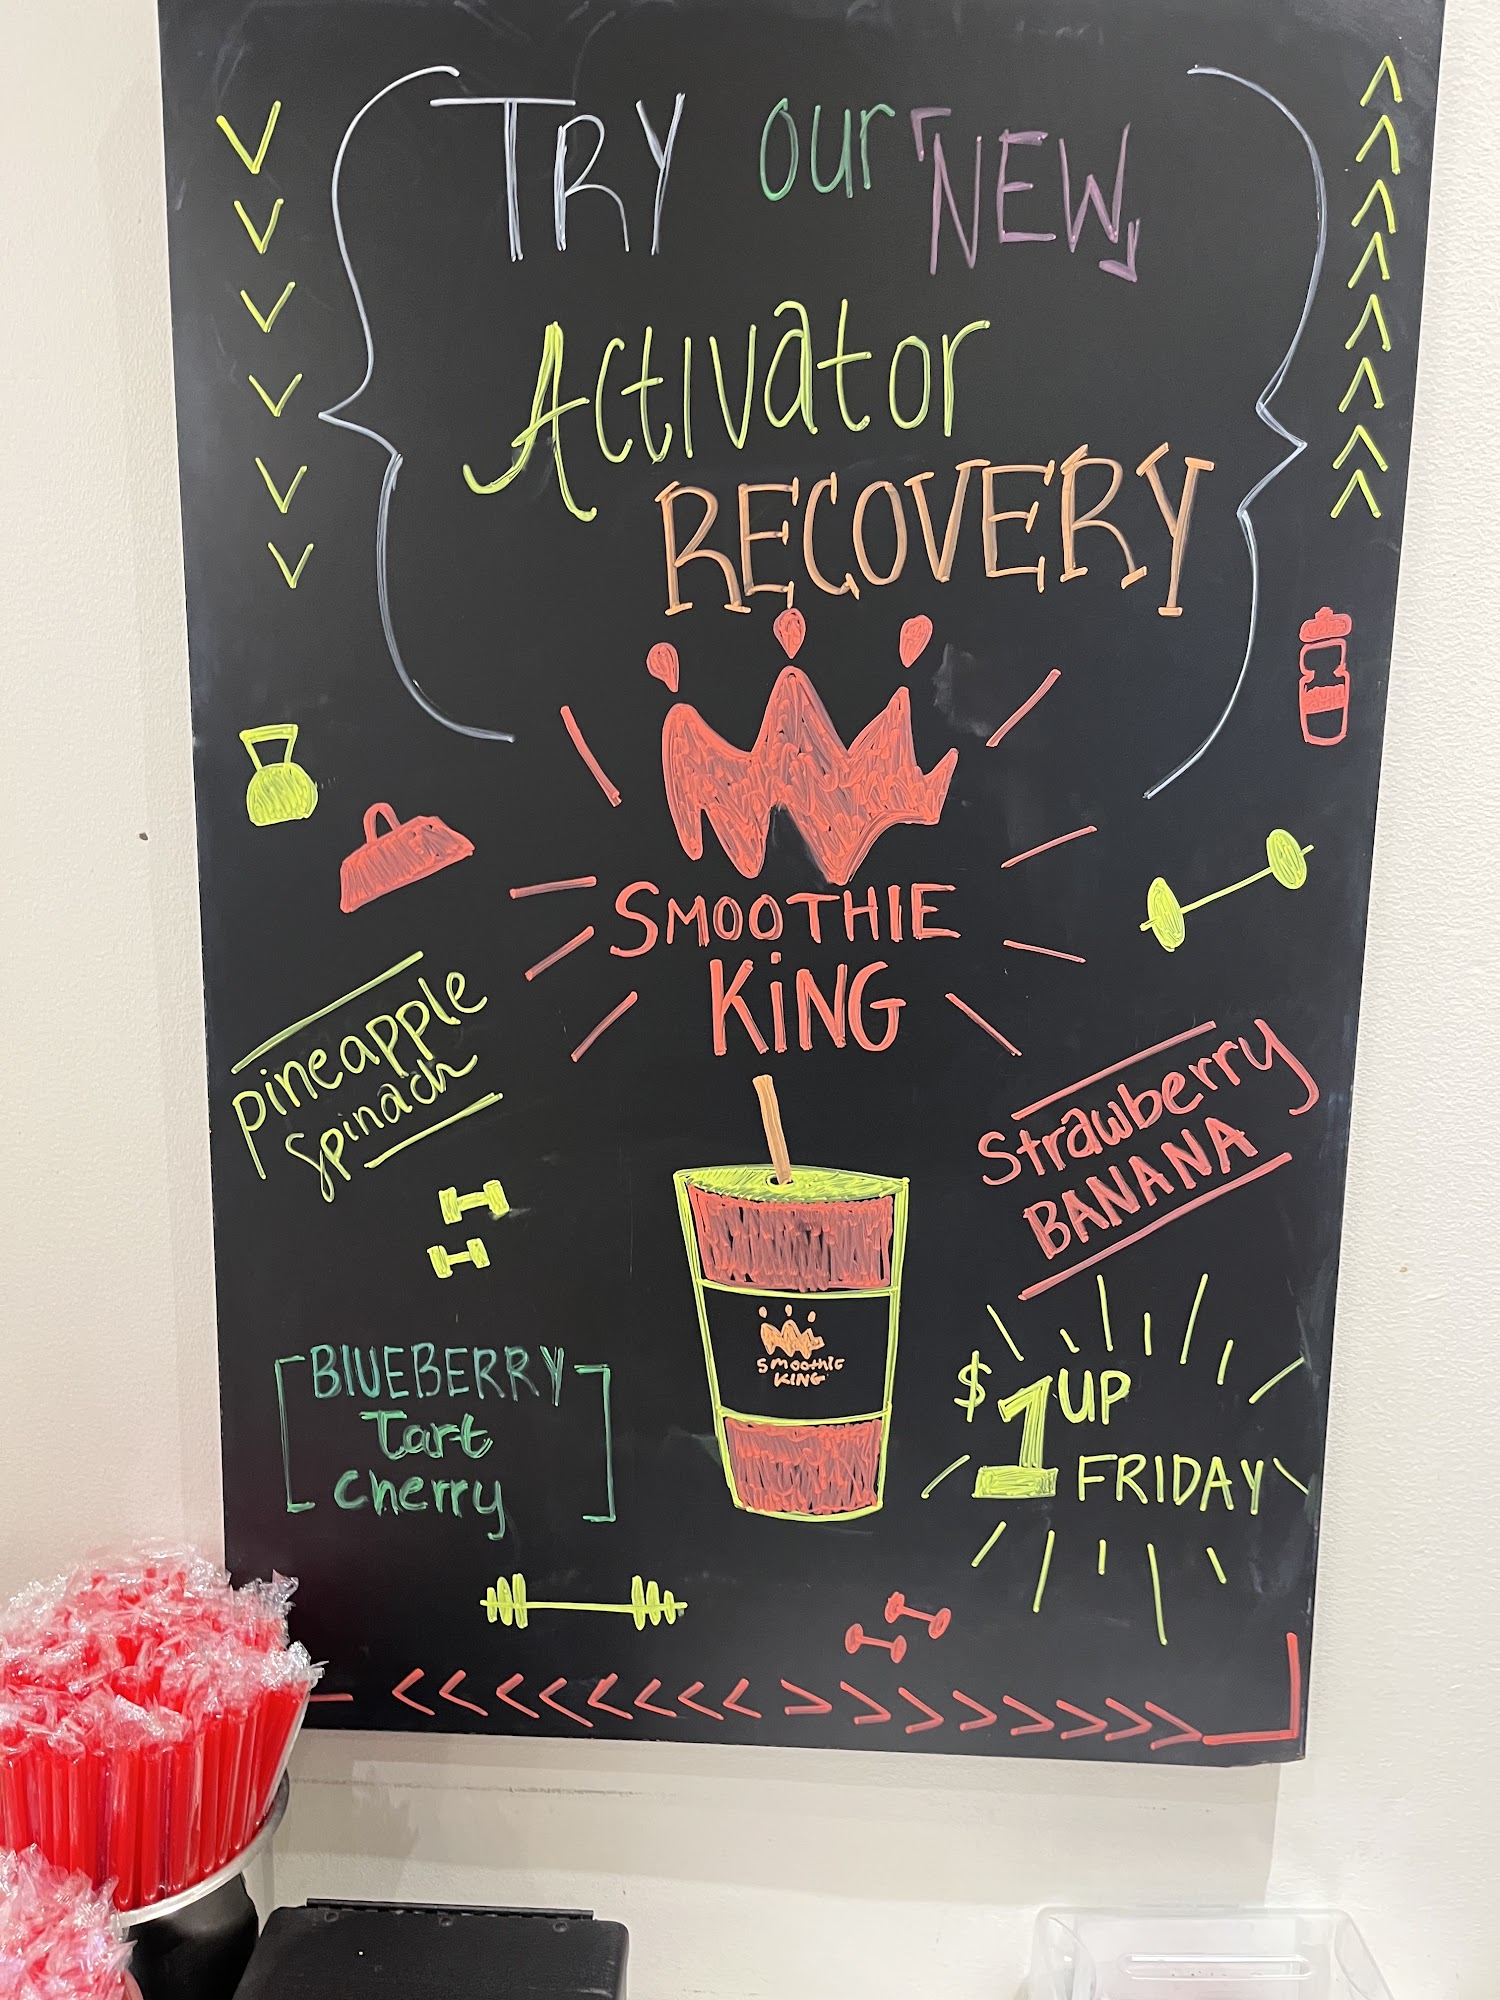 TRY our NEW
Activator
RECOVERY
SMOOTHIE
KiNG
pineapple
spinach
Strawberry
BANANA
SMOOTHIE
KING
BlUEBERRY
Tart
cherry
$1 UP
FRIDAY